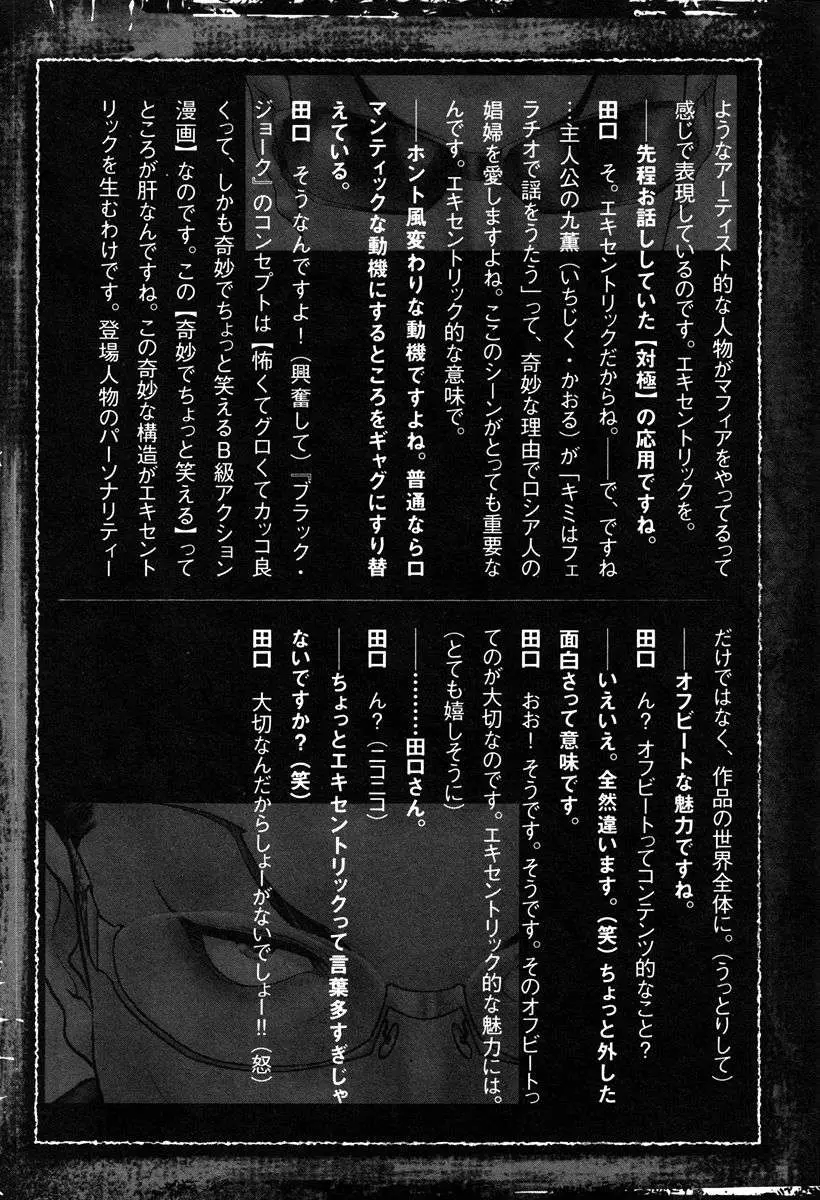 ようなアーティスト的な人物がマフィアをやってるって
感じで表現しているのです。エキセントリックを。
――先程お話ししていた【対極】の応用ですね。
田口　そ。エキセントリックだからね。――で、ですね
…主人公の九薫（いちじく・かおる）が「キミはフェ
ラチオで謡をうたう」って、奇妙な理由でロシア人の
娼婦を愛しますよね。ここのシーンがとっても重要な
んです。エキセントリック的な意味で。
――ホント風変わりな動機ですよね。普通ならロ
マンティックな動機にするところをギャグにすり替
えている。
田口　そうなんですよ！（興奮して）『ブラック・
ジョーク』のコンセプトは【怖くてグロくてカッコ良
くって、しかも奇妙でちょっと笑えるB級アクション
漫画】なのです。この【奇妙でちょっと笑える】って
ところが肝なんですね。この奇妙な構造がエキセント
リックを生むわけです。登場人物のパーソナリティー
だけではなく、作品の世界全体に。（うっとりして）
――オフビートな魅力ですね。
田口　ん？オフビートってコンテンツ的なこと？
――いえいえ。全然違います。（笑）ちょっと外した
面白さって意味です。
田口　おお！そうです。そうです。そのオフビートっ
てのが大切なのです。エキセントリック的な魅力には。
（とても嬉しそうに）
――………田口さん。
田口　ん？（ニコニコ）
――ちょっとエキセントリックって言葉多すぎじゃ
ないですか？（笑）
田口　大切なんだからしょーがないでしょー!!（怒）